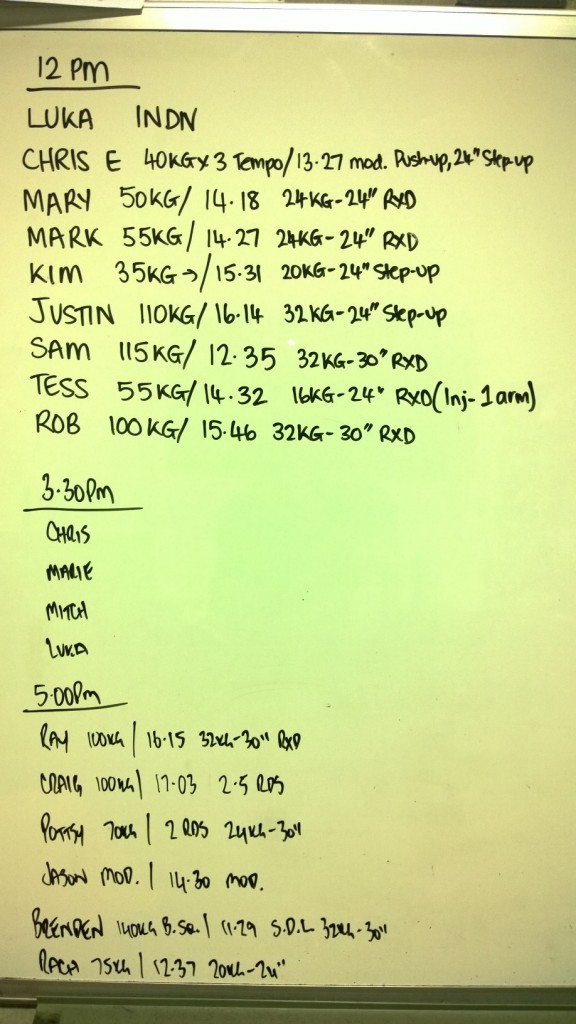 12 PM
LUKA INDN
CHRIS E 40KG x 3 Tempo/13.27 mod. Push-up, 24" Step-up
MARY 50KG/ 14.18 24KG-24" RXD
MARK 55KG/ 14.27 24KG-24" RXD
KIM 35KG→/15.31 20KG-24" Step-up
JUSTIN 110KG/ 16.14 32KG-24" Step-up
SAM 115KG/ 12.35 32KG-30" RXD
TESS 55KG/14.32 16KG-24" RXD (Inj-1arm)
ROB 100KG/ 15.46 32KG-30" RXD
3.30PM
CHRIS
MARIE
MITCH
LUKA
5.00PM
RAY 100KG | 16.15 32KG-30" RXD
CRAIG 100KG | 17.03 2.5 RDS
POTTSY 70KG | 2 RDS 24KG-30"
JASON MOD. | 14.30 MOD.
BRENDEN 140KG B.SQ. | 11.29 S.D.L 32KG-30"
RACH 75KG | 12.37 20KG-24"